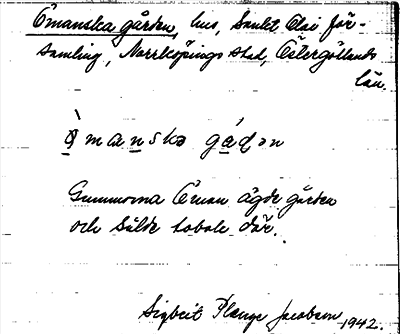 Ömanska gården, hus, Sankt Olai för-
samling, Norrköpings stad, Östergötlands
län.
ò̱ma̱nskə gá̱ḍən
Gummorna Öman ägde gården
och sålde tobak där.
Sigbrit Plænge Jacobson 1942.